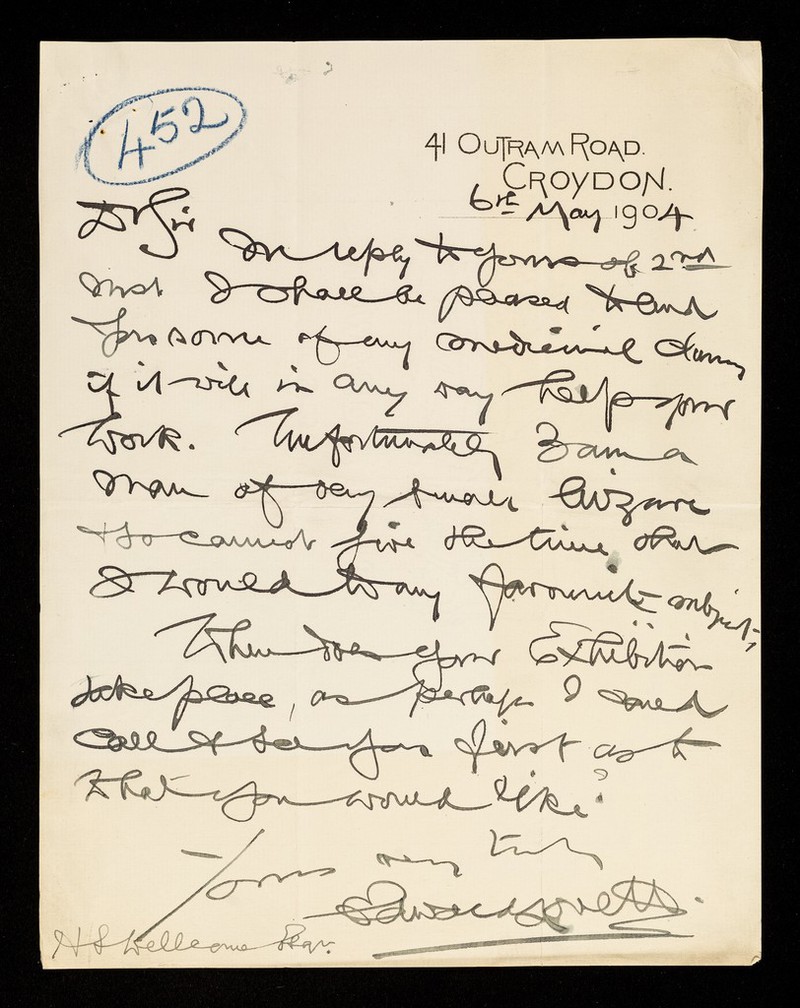 452
41 OUTRAM ROAD.
CROYDON.
6th May 1904
Dr Sir
In reply to yours of 2nd
inst I shall be pleased to lend
you some of my medicinal
if it will in any way help your
work. Unfortunately I am a
man of very small
& so cannot give the time that
I would to my favourite subject,
When does your Exhibition
take place, as perhaps I could
call & see you first as to
what you would like?
Yours very truly
Edward Lovett.
H S Wellcome Esqr.